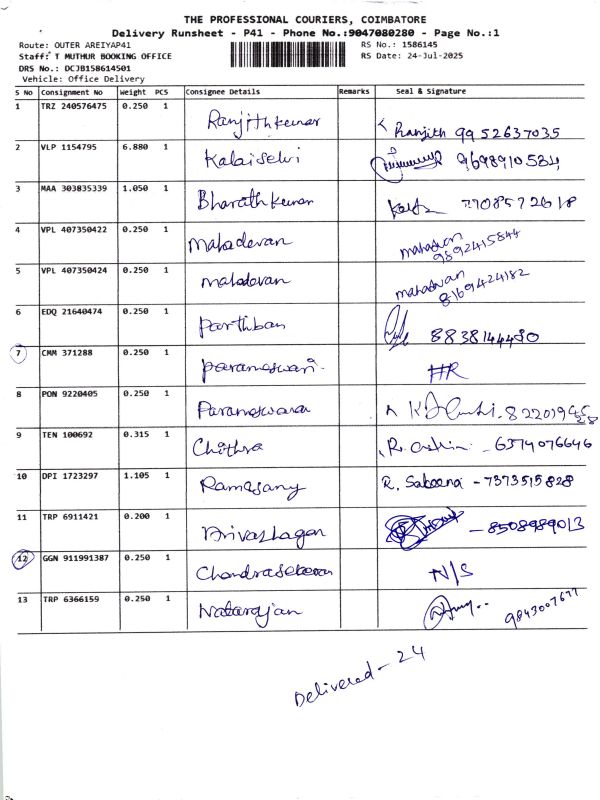 THE PROFESSIONAL COURIERS, COIMBATORE
Delivery Runsheet - P41 - Phone No.:9047080280 - Page No.:1
Route: OUTER AREIYAP41 RS No.: 1586145
Staff: T MUTHUR BOOKING OFFICE RS Date: 24-Jul-2025
DRS No.: DCJB158614501
Vehicle: Office Delivery
S No Consignment No Weight PCS Consignee Details Remarks Seal & Signature
1 TRZ 240576475 0.250 1 Ranjithkumar Ranjith 9952637035
2 VLP 1154795 6.880 1 Kalaiselvi 9698910584
3 MAA 303835339 1.050 1 Bharathkumar 7708572618
4 VPL 407350422 0.250 1 Mahadevan mahadvan 9892415844
5 VPL 407350424 0.250 1 mahadevan mahadvan 8169424182
6 EDQ 21640474 0.250 1 Parthban 8838144480
7 CMM 371288 0.250 1 parameswari. HR
8 PON 9220405 0.250 1 Parameswara
9 TEN 100692 0.315 1 Chithra - 6374076646
10 DPI 1723297 1.105 1 Ramasany R. Sabeena - 7373515828
11 TRP 6911421 0.200 1 Arivazhagan - 8508989013
12 GGN 911991387 0.250 1 Chandrasekaran N/S
13 TRP 6366159 0.250 1 Natarajan 9843007677
Delivered - 24